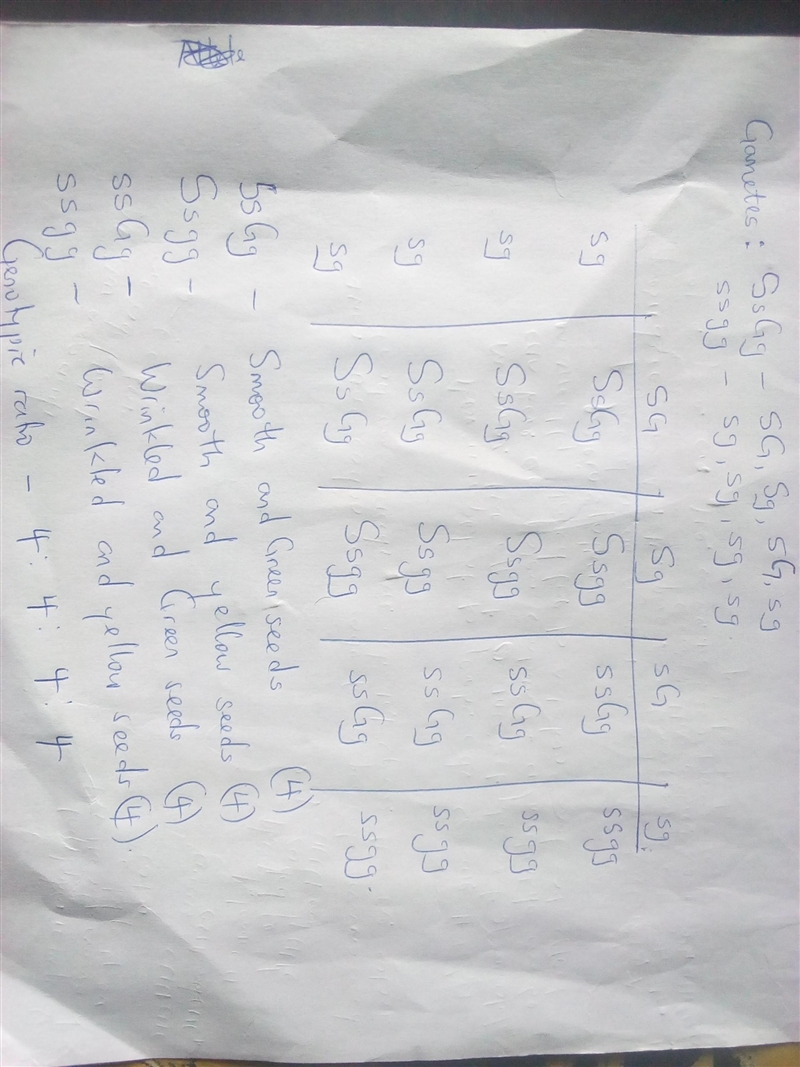 Gametes: SsGg - SG, Sg, sG, sg
ssgg - sg, sg, sg, sg.
SG Sg sG sg.
sg SsGg Ssgg ssGg ssgg
sg SsGg Ssgg ssGg ssgg
sg SsGg Ssgg ssGg ssgg
sg SsGg Ssgg ssGg ssgg.
SsGg - Smooth and Green seeds (4)
Ssgg - Smooth and yellow seeds (4)
ssGg - Wrinkled and Green seeds (4)
ssgg - Wrinkled and yellow seeds (4).
Genotypic ratio - 4: 4: 4: 4